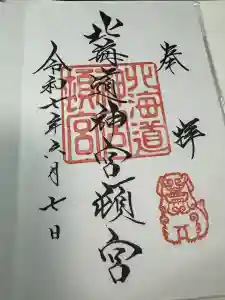 奉拝
北海道神宮頓宮
北海道神宮頓宮
令和七年六月七日